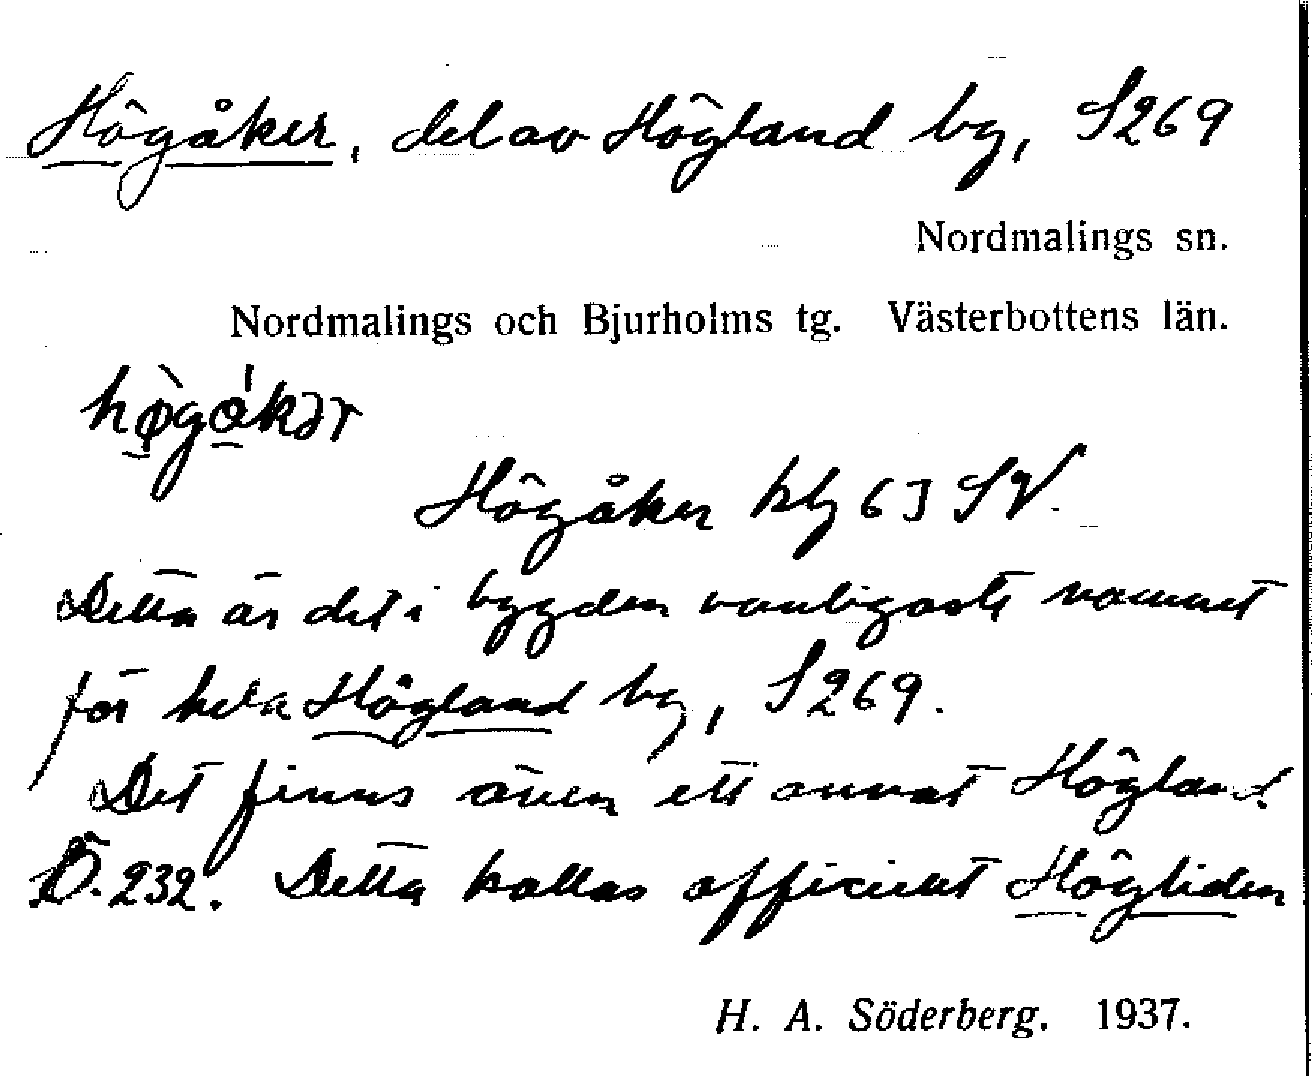 Högåker, del av Högland by, S 269
Nordmalings sn.
Nordmalings och Bjurholms tg. Västerbottens län.
hø̀gákər
Högåker kbl 63 SV.
Detta är det i bygden vanligaste namnet
för hela Högland by, S 269.
Det finns även ett annat Högland
Ö. 232. Detta kallas officiellt Högliden
H. A. Söderberg. 1937.